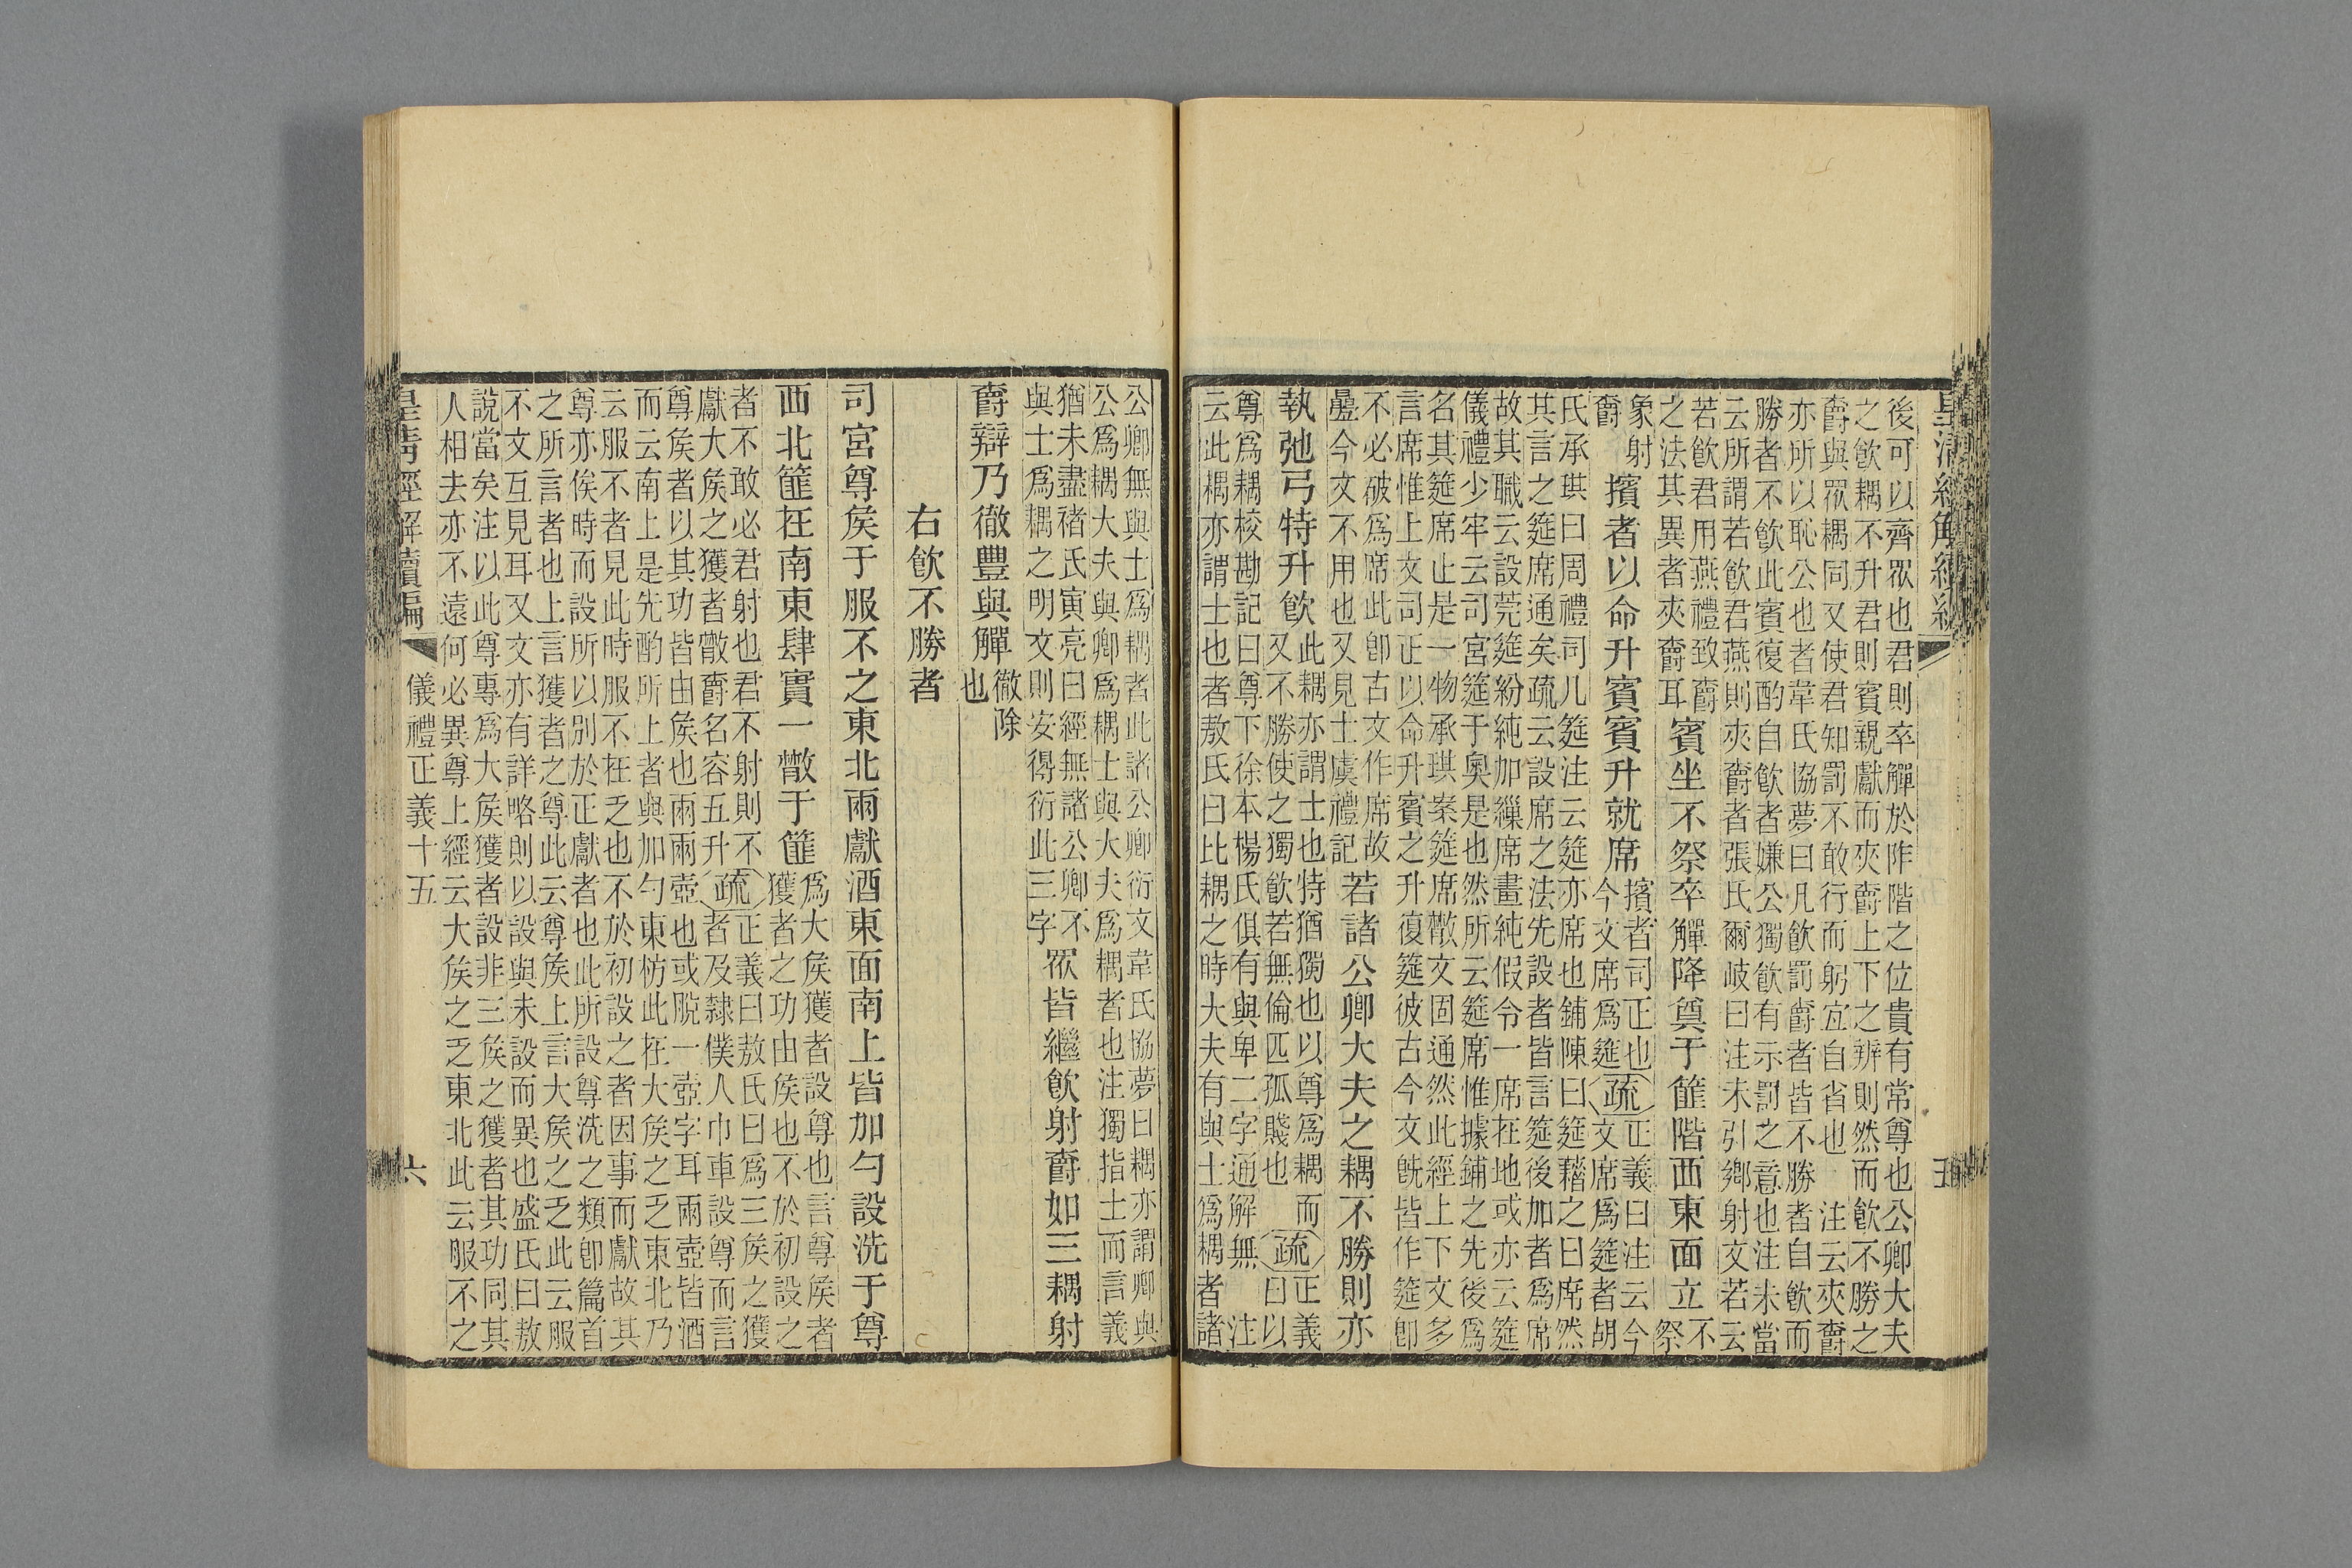 皇清經解續編　五
後可以齊眾也君則卒觶於阼階之位貴有常尊也公卿大夫
之飲耦不升君則賓親獻而夾爵上下之辨則然而飲不勝之
爵與眾耦同又使君知罰不敢行而躬宜自省也　注云夾爵
亦所以恥公也者韋氏協夢曰凡飲罰爵者皆不勝者自飲而
勝者不飲此賓復酌自飲者嫌公獨飲有示罰之意也注未當
云所謂若飲君燕則夾爵者張氏爾岐曰注未引鄉射文若云
若飲君用燕禮致爵
之法其異者夾爵耳
賓坐不祭卒觶降奠于篚階西東面立
不
祭
象射
爵
擯者以命升賓賓升就席
擯者司正也
今文席爲筵
疏
正義曰注云今
文席爲筵者胡
氏承珙曰周禮司几筵注云筵亦席也鋪陳曰筵藉之曰席然
其言之筵席通矣疏云設席之法先設者皆言筵後加者爲席
故其職云設莞筵紛純加繅席畫純假令一席在地或亦云筵
儀禮少牢云司宮筵于奧是也然所云筵席惟據鋪之先後爲
名其筵席止是一物承珙案筵席散文固通然此經上下文多
言席惟上文司正以命升賓之升復筵彼古今文旣皆作筵卽
不必破爲席此卽古文作席故
疊今文不用也又見士虞禮記
若諸公卿大夫之耦不勝則亦
執弛弓特升飲
此耦亦謂士也特猶獨也以尊爲耦而
又不勝使之獨飲若無倫匹孤賤也
疏
正義
曰以
尊爲耦校勘記曰尊下徐本楊氏俱有與卑二字通解無　注
云此耦亦謂士也者敖氏曰比耦之時大夫有與士爲耦者諸
公卿無與士爲耦者此諸公卿衍文韋氏協夢曰耦亦謂卿與
公爲耦大夫與卿爲耦士與大夫爲耦者也注獨指士而言義
猶未盡褚氏寅亮曰經無諸公卿不
與士爲耦之明文則安得衍此三字
眾皆繼飲射爵如三耦射
爵辯乃徹豐與觶
徹除
也
右飲不勝者
司宮尊矦于服不之東北兩獻酒東面南上皆加勺設洗于尊
西北篚在南東肆實一散于篚
爲大矦獲者設尊也言尊矦者
獲者之功由矦也不於初設之
者不敢必君射也君不射則不
獻大矦之獲者散爵名容五升
疏
正義曰敖氏曰爲三矦之獲
者及隸僕人巾車設尊而言
尊矦者以其功皆由矦也兩兩壺也或脫一壺字耳兩壺皆酒
而云南上是先酌所上者與加勺東枋此在大矦之乏東北乃
云服不者見此時服不在乏也不於初設之者因事而獻故其
尊亦俟時而設所以別於正獻者也此所設尊洗之類卽篇首
之所言者也上言獲者之尊此云尊矦上言大矦之乏此云服
不文互見耳又文亦有詳略則以設與未設而異也盛氏曰敖
說當矣注以此尊專爲大矦獲者設非三矦之獲者其功同其
人相去亦不遠何必異尊上經云大矦之乏東北此云服不之
皇清經解續編　儀禮正義十五　六